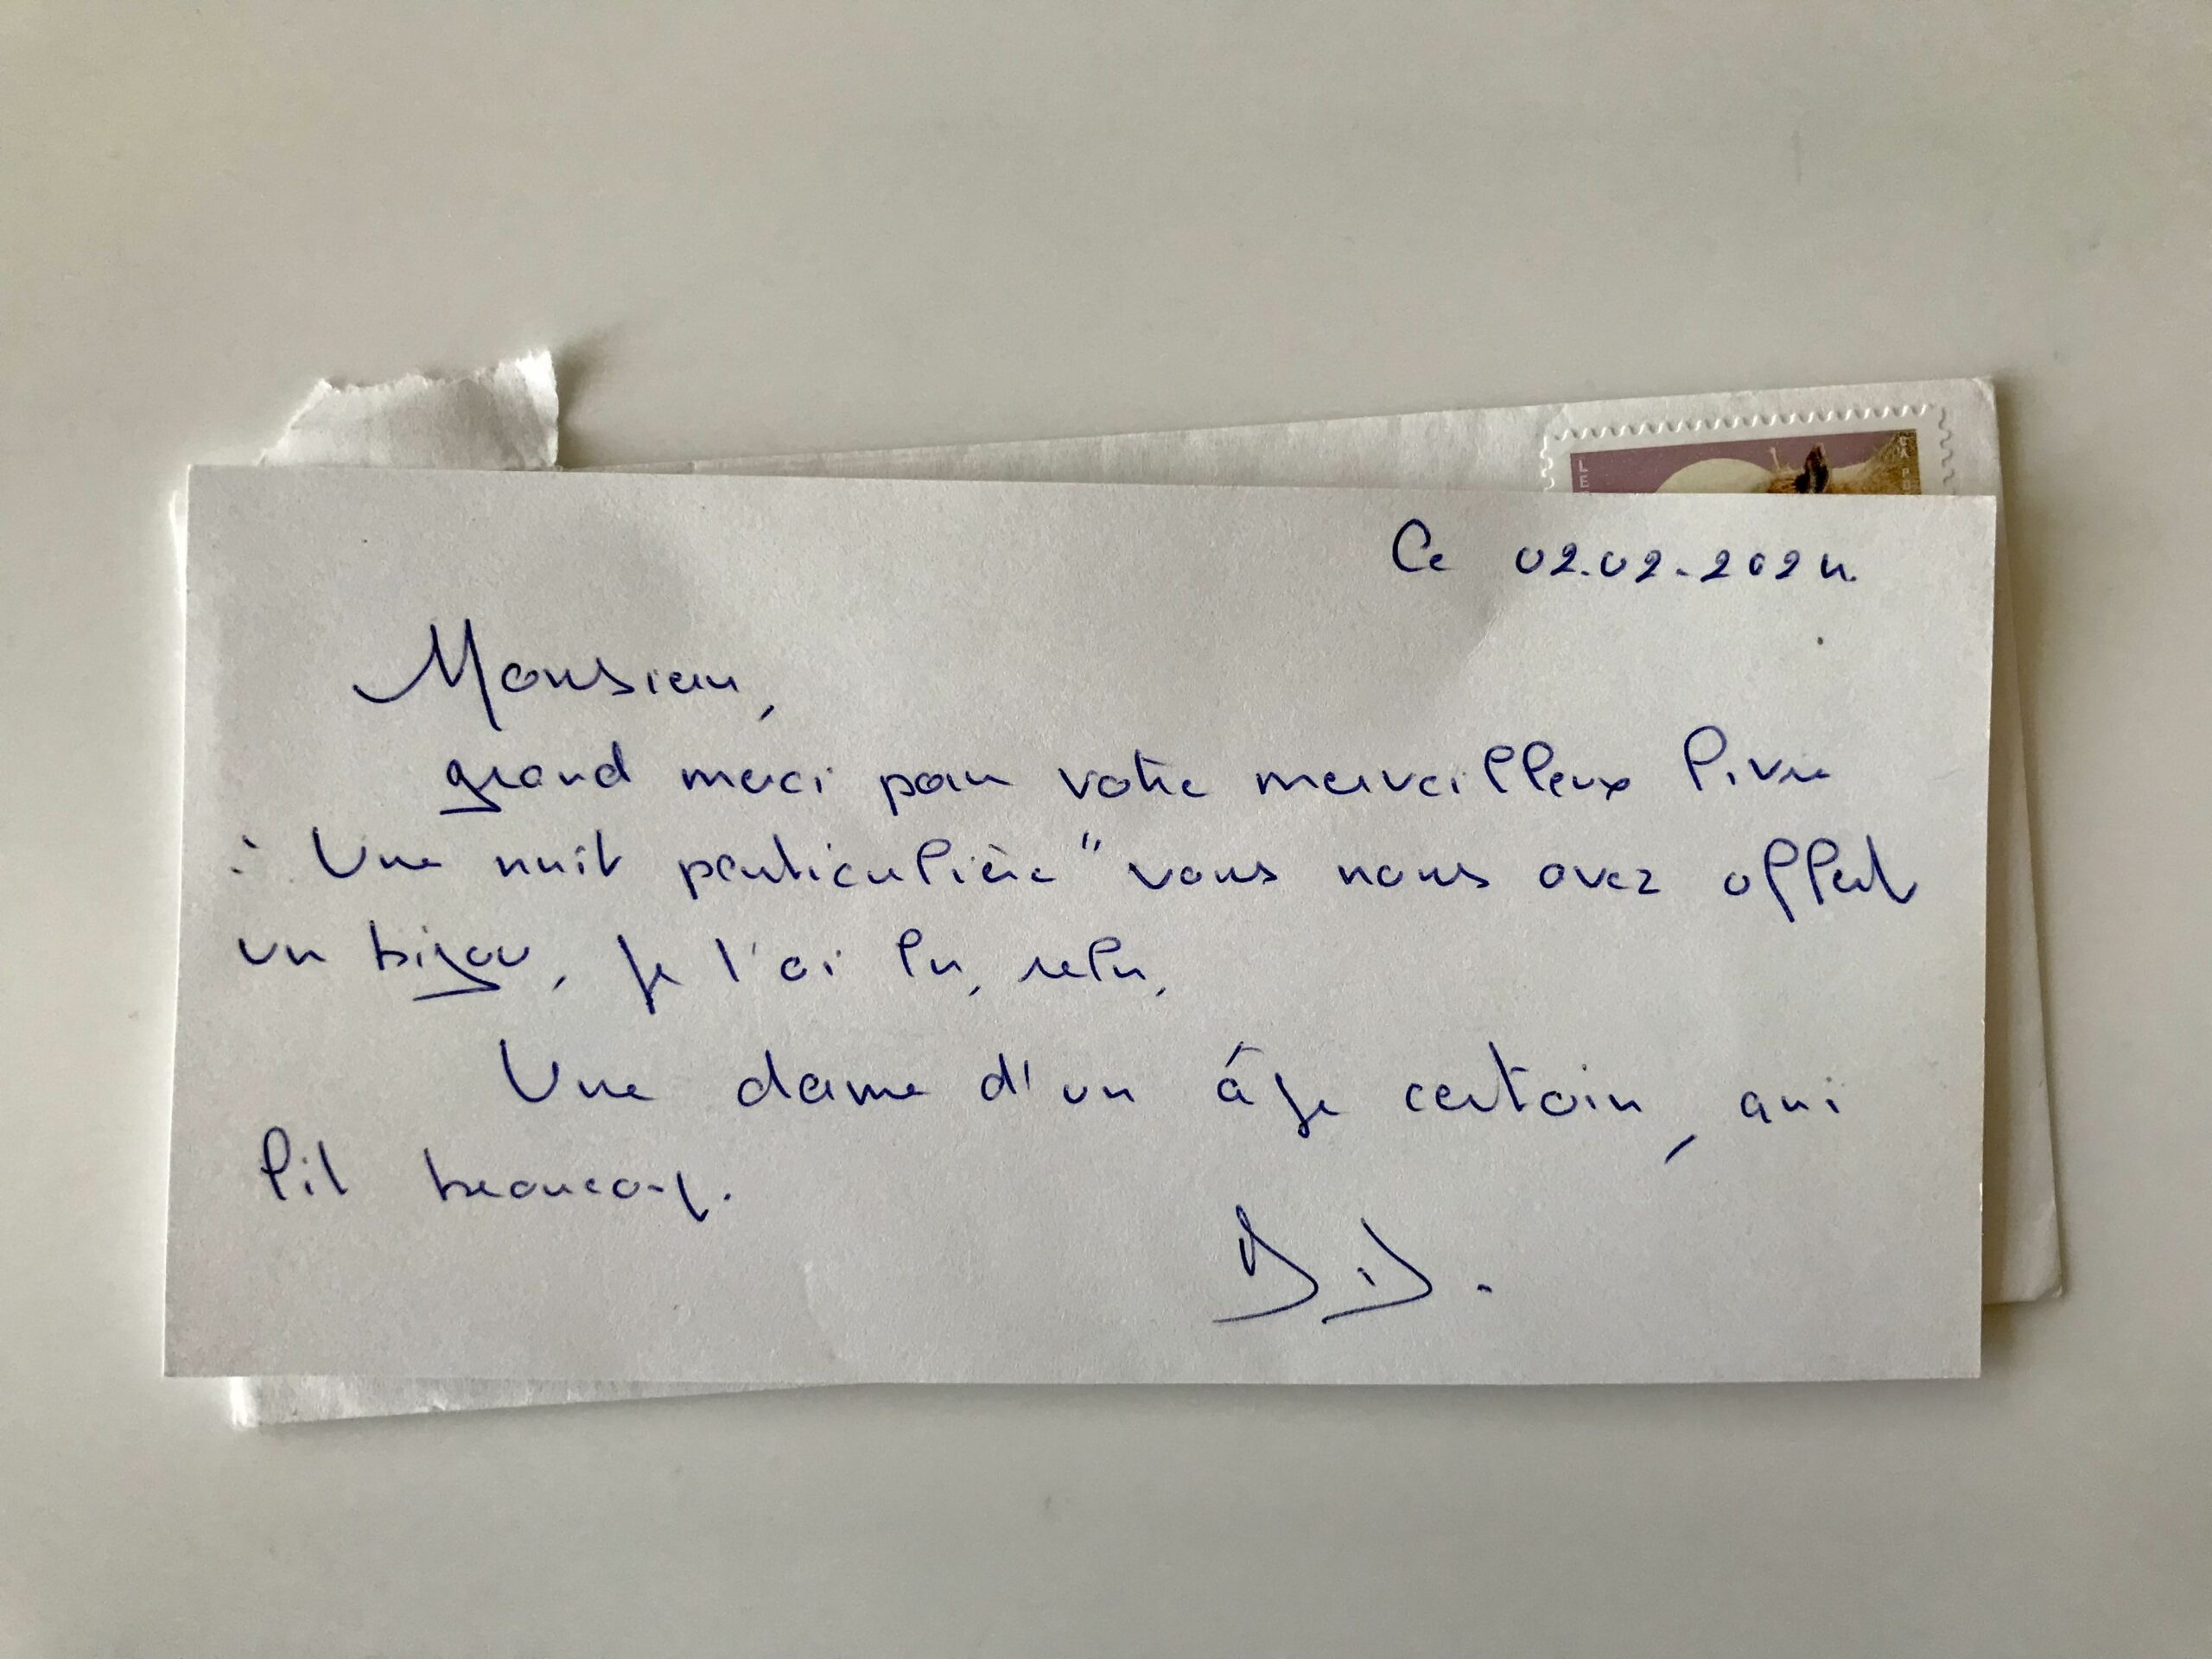 Ce 02.02.2024.
Monsieur,
grand merci pour votre merveilleux livre
: Une nuit particulière" vous nous avez offert
un bijou, je l'ai lu, relu,
Une dame d'un âge certain, qui
lit beaucoup.